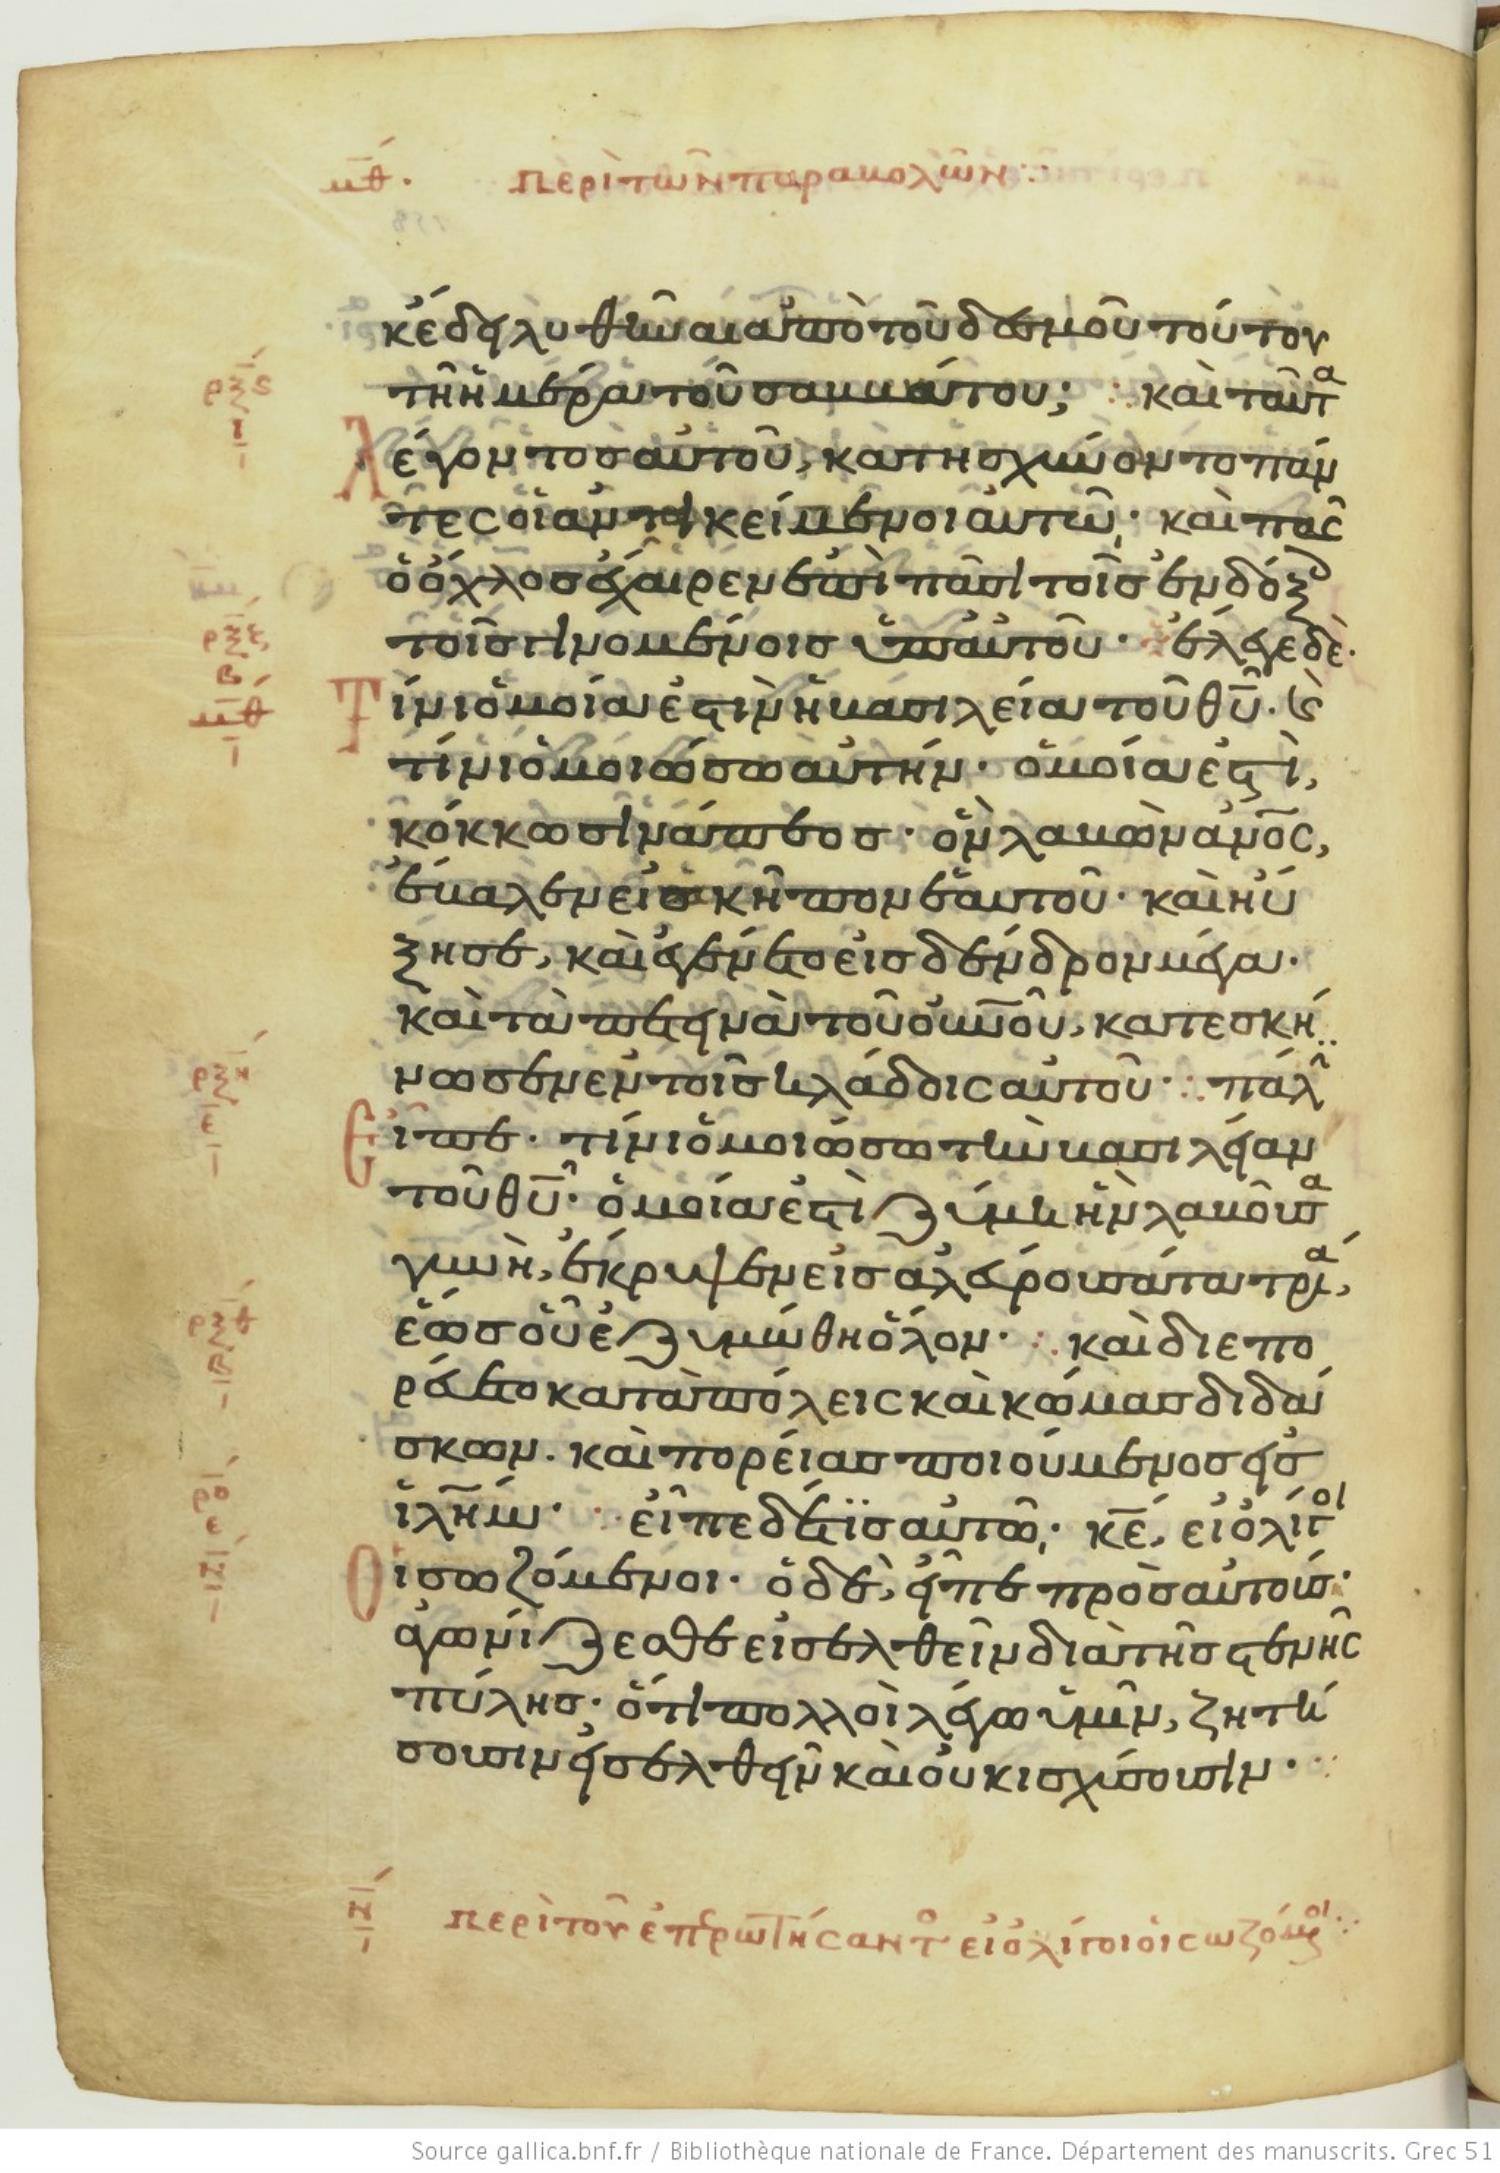 μθ. περὶ τῶν παραβολῶν
κ ἔδει λυθῆναι ἀπὸ τοῦ δεσμοῦ τούτου
τῆ ἡμέρα τοῦ σαββάτου; καὶ ταῦτα
ρξς
ι
λέγοντος αὐτοῦ, κατησχύνοντο πάν
τες οἱ ἀντικείμενοι αὐτῶ· καὶ πᾶς
ὁ ὄχλος ἔχαιρεν ἐπὶ πᾶσι τοῖς ἐνδόξοις
τοῖς γινομένοις ὑπ αὐτοῦ· ἔλεγε δὲ·
β
μθ
τίνι ὁμοία ἐστὶν ἡ βασιλεία τοῦ θῦ· καὶ
τίνι ὁμοιώσω αὐτήν· ὁμοία ἐστὶ,
κόκκω σινάπεος· ὃν λαβὼν ἄνος,
ἔβαλεν εἰς κῆπον ἑαυτοῦ· καὶ ηὔ
ξησε, καὶ ἐγένετο εἰς δένδρον μέγα·
καὶ τὰ πετεινὰ τοῦ οὐνοῦ, κατεσκή
νωσεν ἐν τοῖς κλάδοις αὐτοῦ· πάλιν
ρξη
ε
εἶπε· τίνι ὁμοιώσω τὴν βασιλείαν
τοῦ θῦ· ὁμοία ἐστὶ ζύμη ἣν λαβοῦσα
γυνὴ, ἔκρυψεν εἰς ἀλεύρου σάτα τρία,
ἕως οὗ ἐζυμώθη ὅλον· καὶ διεπο
ρξθ
ρεύετο κατὰ πόλεις καὶ κώμας διδά
σκων. καὶ πορείας ποιούμενος εἰς
ρο
ε
ν
ἱλῆμ· εἶπε δέ τις αὐτῶ· κε, εἰ ὀλίγοι
οἱ σωζόμενοι· ὁ δὲ, εἶπε πρὸς αὐτούς·
ἀγωνίζεσθε εἰσελθεῖν διὰ τῆς στενῆς
πύλης· ὅτι πολλοὶ λέγω ὑμῖν, ζητή
σουσιν εἰσελθεῖν καὶ οὐκ ἰσχύσουσιν·
ν περὶ τοῦ ἐπερωτήσαντος εἰ ὀλίγοι οἱ σωζόμενοι